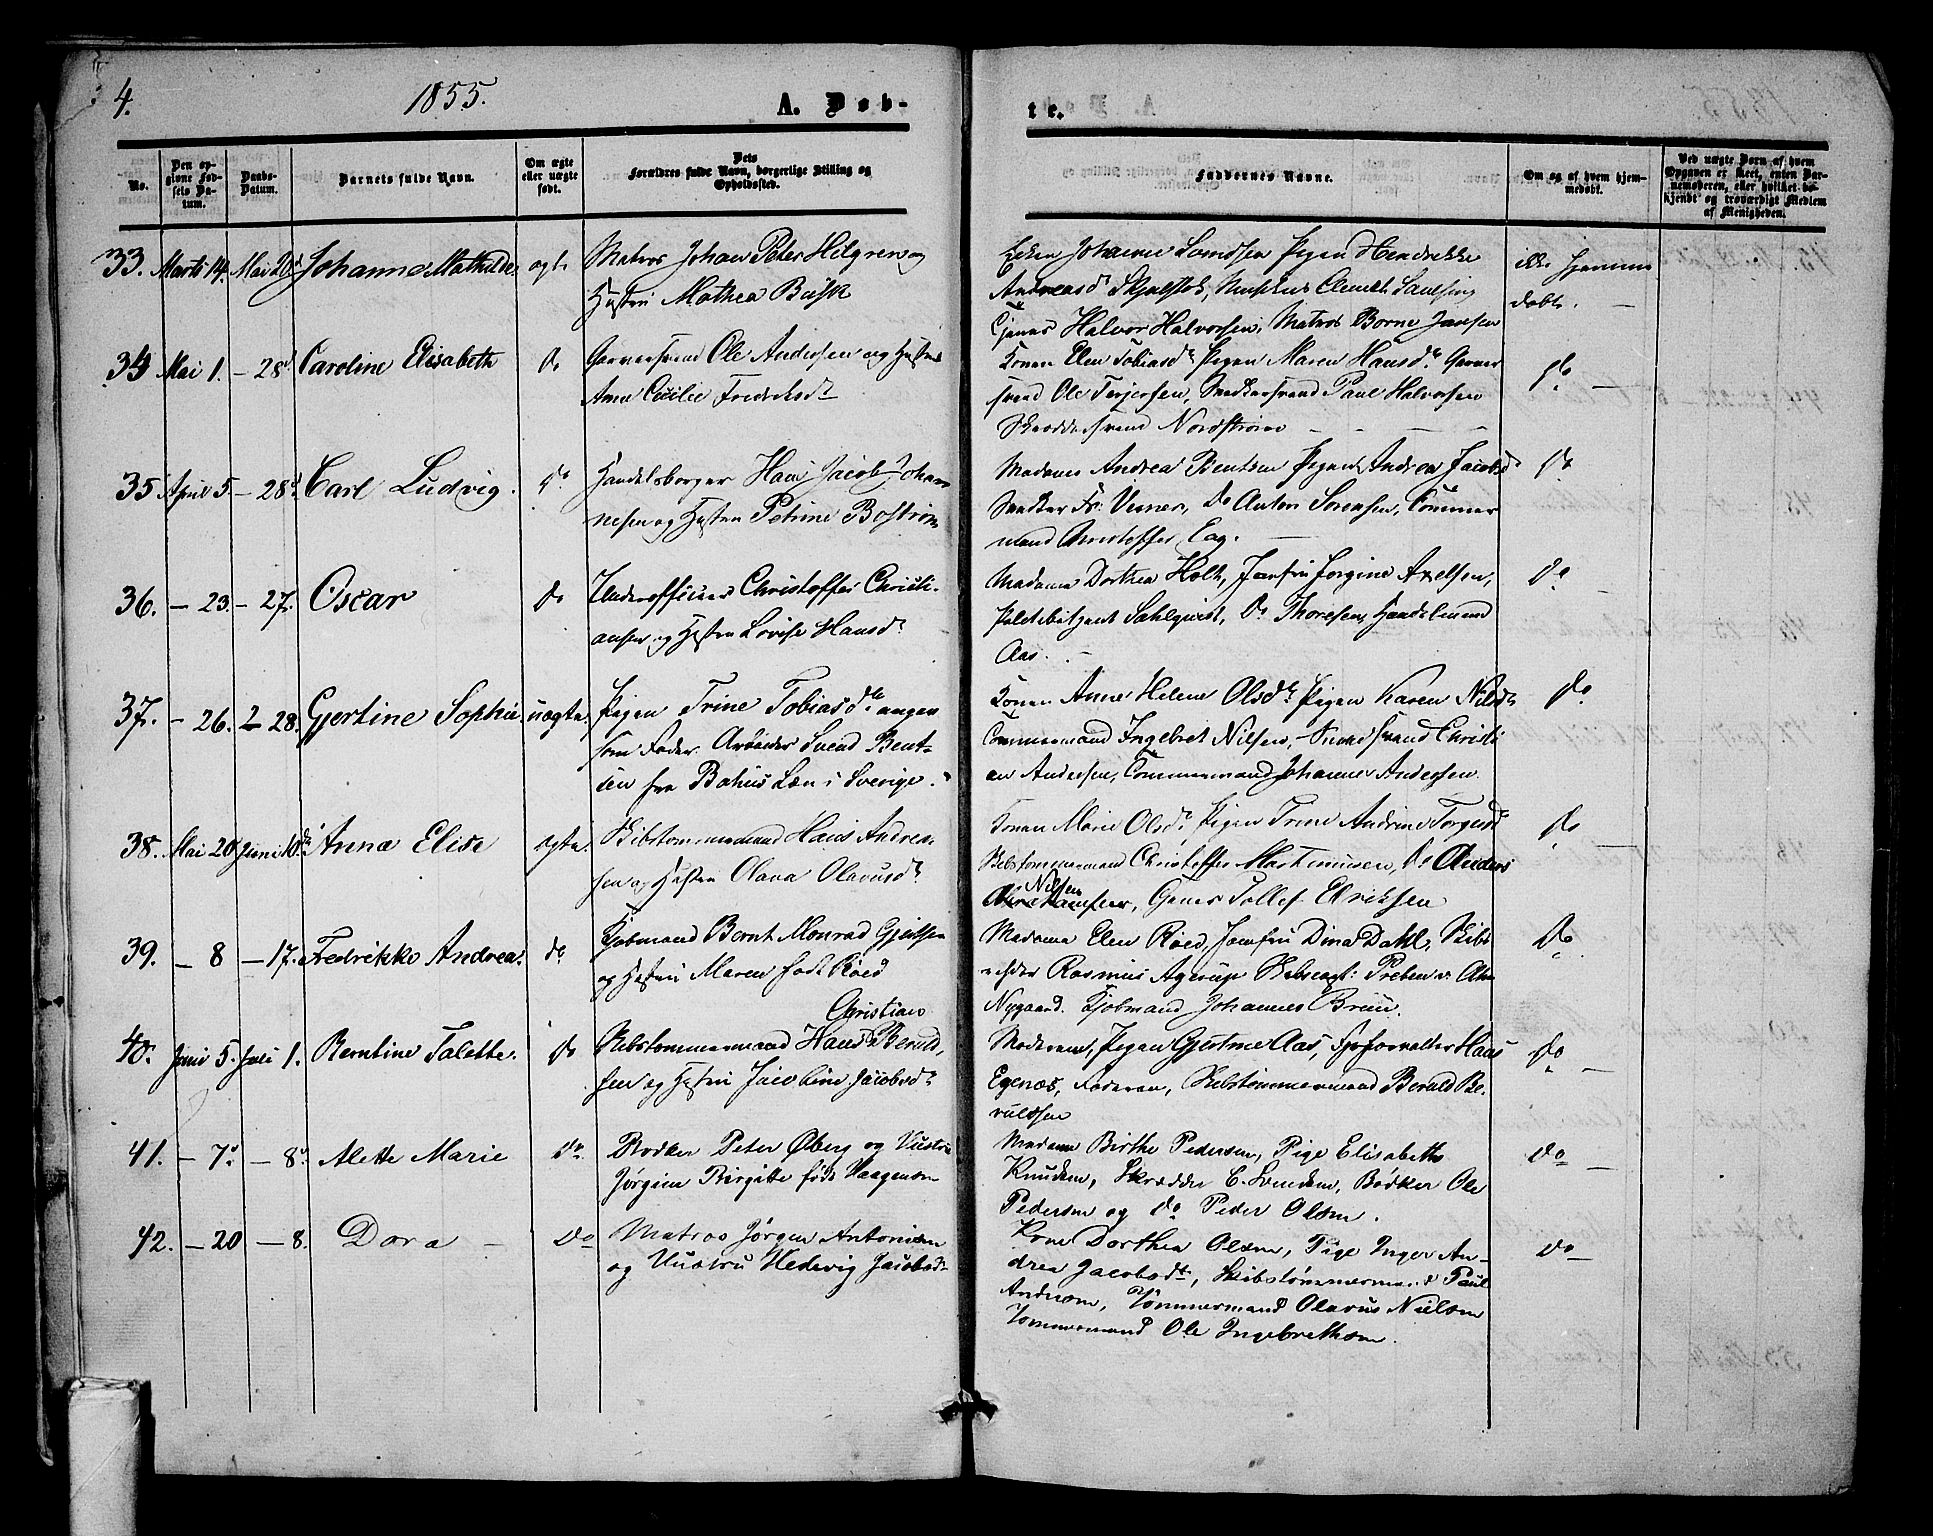 4. 1855. A. Døb-
te.
No.
Den op-
givne Fød-
sels Da-
tum.
Daabs-
Datum.
Barnets fulde Navn.
Om ægte
eller uægte
født.
Dets
Forældres fulde Navn, borgerlige Stilling og
Opholdssted.
Faddernes Navne.
Om og af hvem hjem-
medøbt.
Ved uægte Børn af hvem
Opgaven er skeet, enten Bar-
nemoderen, eller hvilket be-
kjendt og troværdigt Medlem
af Menigheden.
33. Marti 14. Mai 28d Johanne Mathilde ægte
Matros Johan Peter Hilgren og
Hustru Mathea Busk
Johanne Pigen Hendrikke
Andreasd
Halvor Halvorsen, Matros Borne Jansen
ikke hjemme
døbt. —
34 Mai 1. — 28d. Caroline Elisabeth do
Garversvend Ole Andersen og Hustru
Anne Cicilie Fredriksdr
Konen Elen Tobiasdr Pigen Maren Hansdr Garver
svend Ole Terjersen, Snedkersvend Paul Halvorsen
Skræddersvend Nordstrøm — — — —
do —
35 April 5. — 28d. Carl Ludvig. do
Handelsborger Hans Jacob Johan
nesen og Hustru Petrine Bostrøm
Madame Andrea Bentsen Pigen Andrea Jacobsd
Snedker Fr: Do Anton Sørensen, Tømmer
mand Christoffer Eeg. —
do
36. — 23. — 27. Oscar do
Underofficeer Christoffer Christi-
ansen og Hustru Lovise Hansdr
Madame Dorthea Holt, Jomfru Jorgine Axelsen,
Sahlqvist, Do Thoresen, Handelsmand
Aas. —
do —
37. — 26. — 28. Gjertine Sophie uægte.
Pigen Trine Tobiasdr angen
som Fader Arbeider Svend Bent-
sen fra Bahus Læn i Sverige.
Konen Anne Helene Olsdr Pigen Karen Nilsdr
Tømmermand Ingebret Nilsen, svend Christi
an Andersen, Tømmermand Johannes Andersen.
do
38. Mai 20 Juni 10de Anna Elise ægte
Skibstømmermand Hans Andrea-
sen og Hustru Olava Olavusdr
Konen Marie Olsdr Pigen Trine Andrine Torgersd
Skibstømmermand Christoffer Martinusen, do Anders
Nilsen
Abrahamsen, Tollef Eriksen
do —
39. — 8 — 17. Fredrikke Andrea. do
Kjøbmand Bernt Monrad Gjertsen
og Hustru Maren født Røed
Madame Elen Røed, Jomfru Dina Dahl, Skibs
reder Rasmus Agerup Skibscapt: Preben
Nygaard. Kjøbmand Johannes Bruu.
do
40. Juni 5. Juli 1. Berntine Talette. do
Christian
Skibstømmermand Hans Beruld-
sen og Hustru Jacobine Jacobsdr
Moderen, Pigen Gjertine Aas, Hans
Egenæs, Faderen, Skibstømmermand Beruld Be-
ruldsen
do —
41. — 7d. — 8d. Alette Marie do
Bødker Peter Øberg og Hustru
Jørgine Birgitte født Haagensen
Madam Birthe Pedersen, Pige Elisabeth
Knudsen, Skrædder C. Svendsen, Bødker Ole
Pedersen og do Peder Olsen.
do —
42. — 20 — 8. Dora — do
Matros Jørgen Antonisen
og Hustru Hedevig Jacobsdr
Kone Dorthea Olsen, Pige Inger An-
drea Jacobsdt, Skibstømmermand Paul
Andersen, Tømmermand Olavus Nielsen
Tømmermand Ole Ingebrethsen.
do